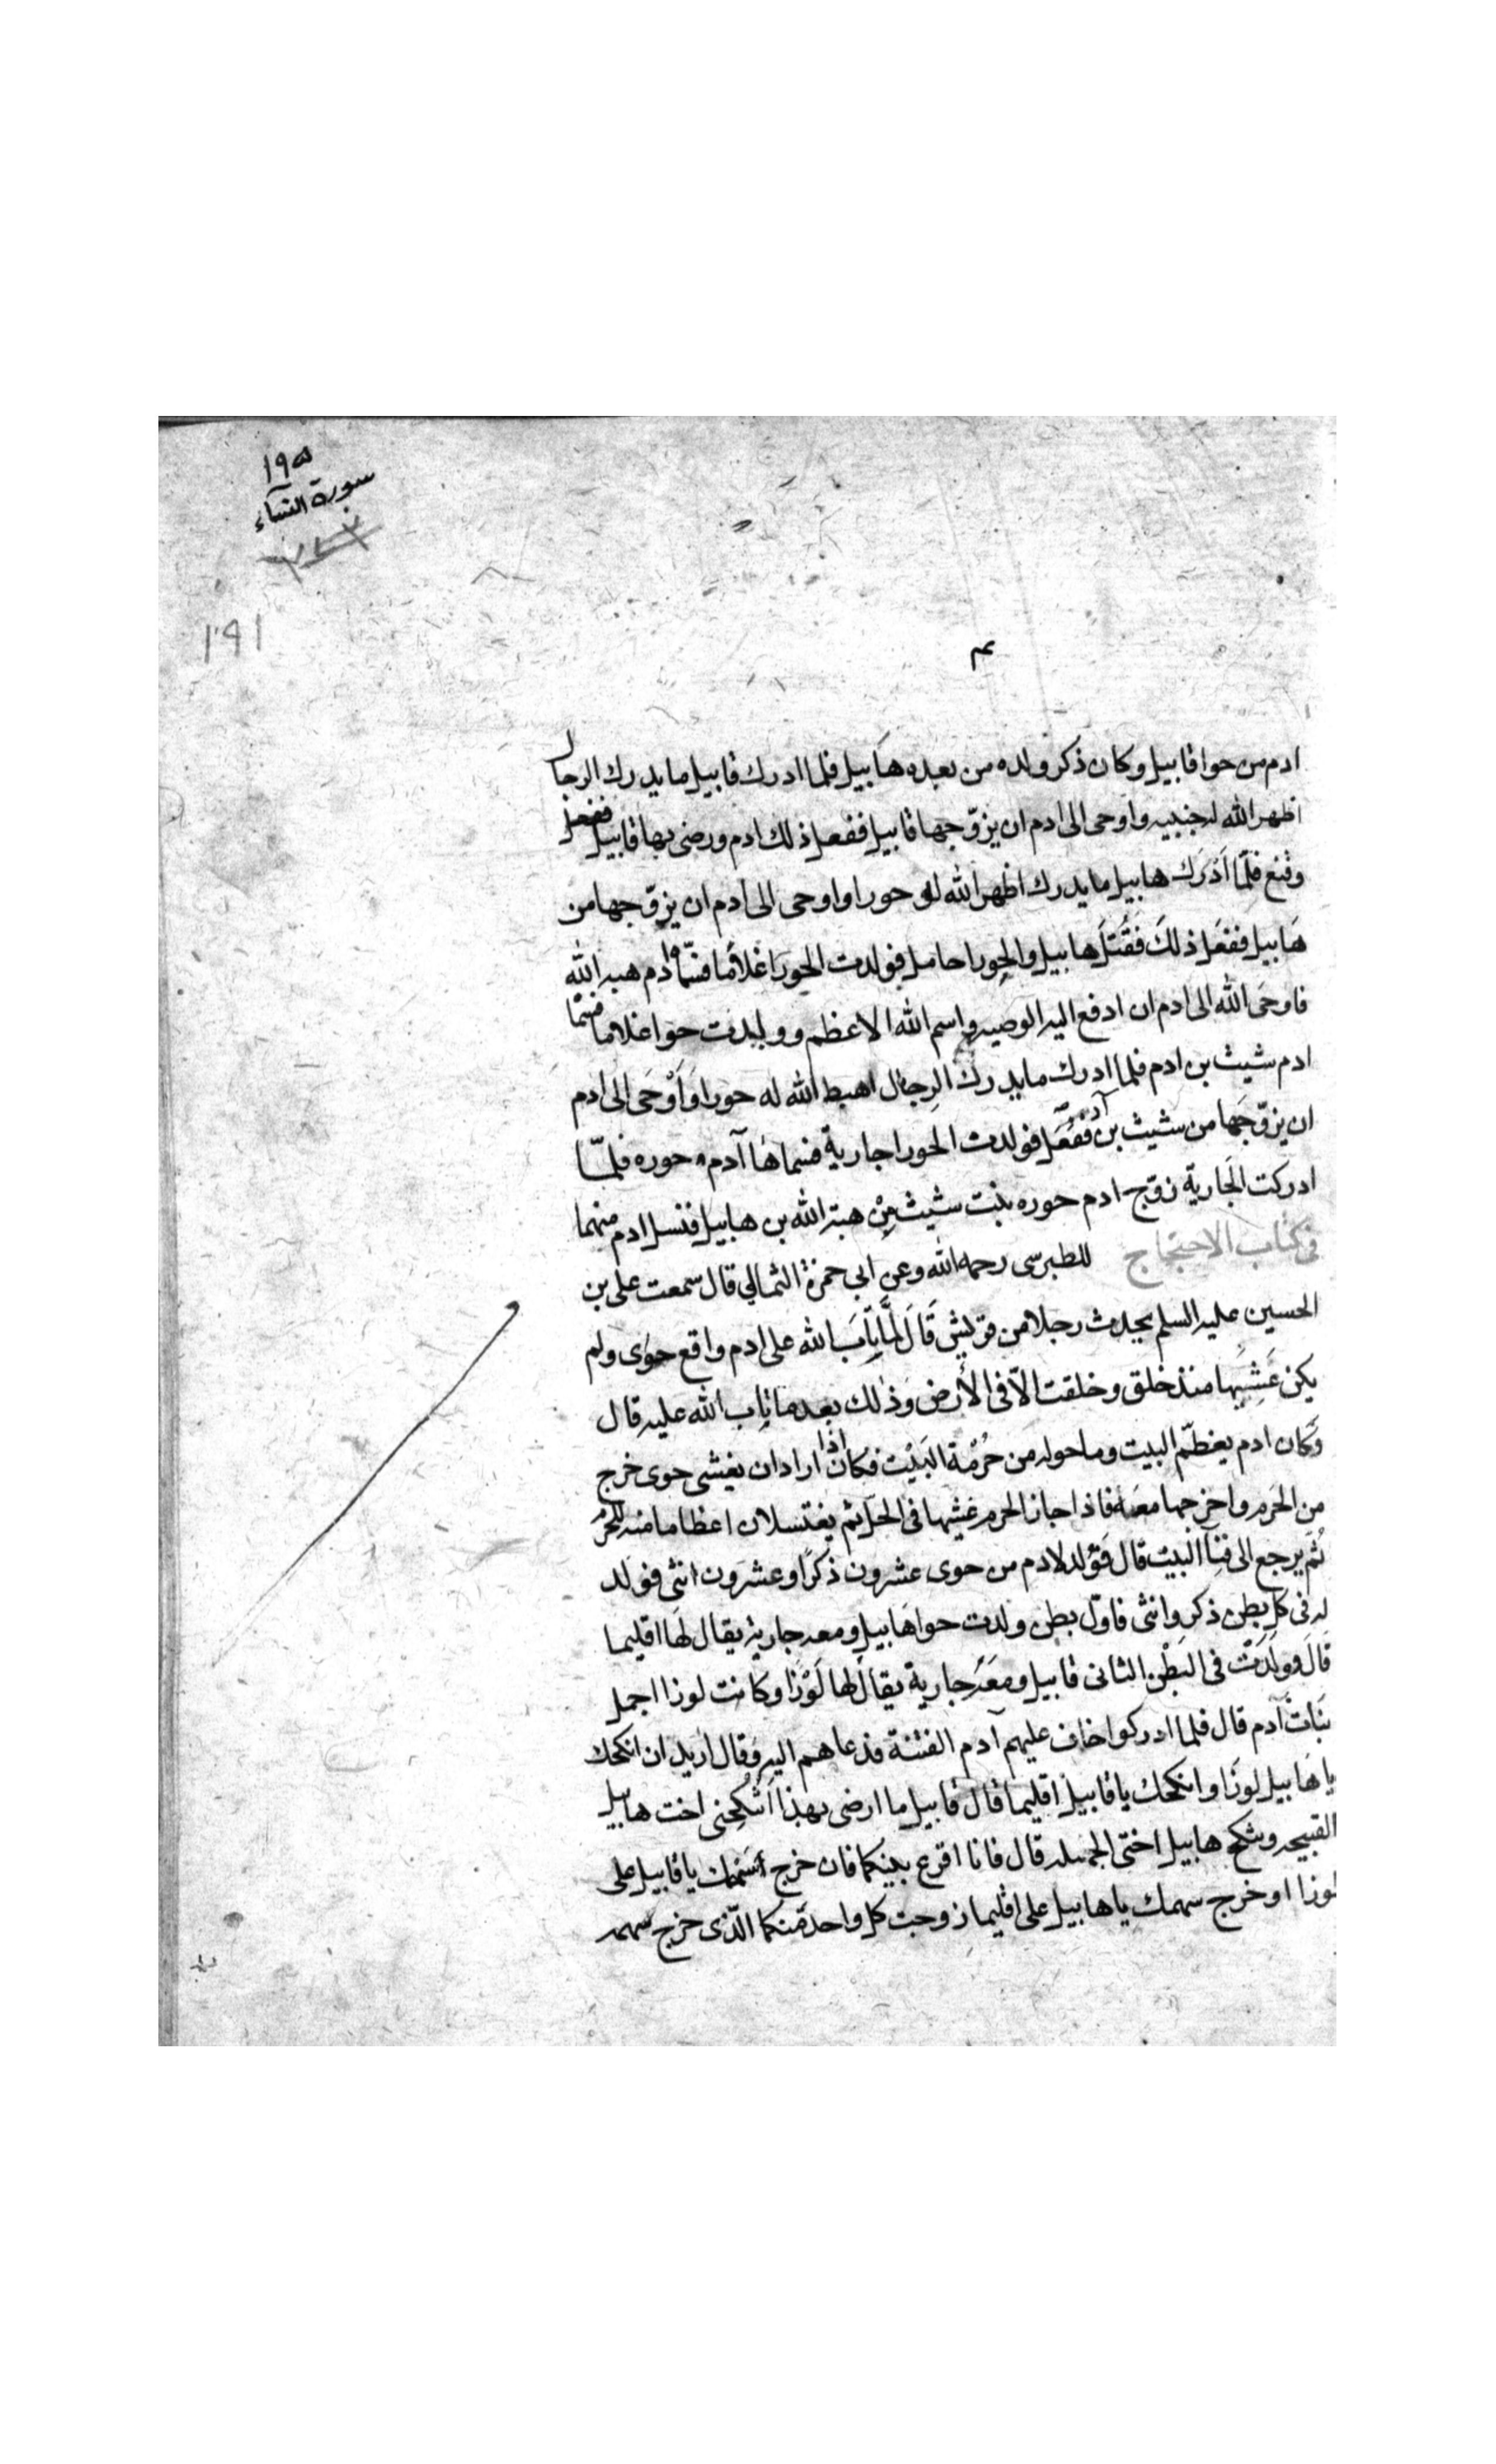 ١٩٥
سورة النساء
١٩١
ادم من حوا قابيل وكان ذكر ولده من بعده هابيل فلما ادرك قابيل ما يدرك الرجال
اظهر الله له جنيه واوحى الى ادم ان يزوّجها قابيل ففعل ذلك ادم ورضى بها قابيل
وقنع فلمّا اَدْرَك هابيل ما يدرك اظهر الله له حورا واوحى الى ادم ان يزوّجها من
هَابيل ففعَل ذلكَ فقُتلَ هابيل والحورا حامل فولدت الحورَا غلامًا فسمّاه ادم هبه الله
فاوحَى الله الى ادم ان ادفع اليه الوصيه واسم الله الاعظم وولدت حوا غلاما فسمّاه
ادم شيث بن ادم فلما ادرك ما يدرك الرجال اهبط الله له حورا وَاَوْحَى الى ادم
ان يزوّجَها من شيث بن آدم ففعَل فولدت الحورا جارية فسماهٰا آدم حوره فلمّا
ادركت الجَارية زوّج ادم حوره بنت شيث مِنْ هبة الله بن هابيل فنسل ادم منهما
فى كتاب الاحتجاج للطبرسى رحمه الله وعن ابى حمزة الثمالي قال سمعت على بن
الحسين عليه السلم يحدث رجلا من قريش قَالَ لمَّا تَابَ الله على ادم واقع حوى ولم
يكن غَشِيَها منذ خلق وخلقت الّا فى الأرض وَذٰلك بعد ما تاب الله عليه قال
وكَان ادم يعظّم البيت وما حوله من حُرْمَة البَيْت فكان اذا اراد ان يغشى حوى خرج
من الحَرم واخرجها معَهُ فاذا جاز الحرم غشيها فى الحلّ ثم يغتسلان اعظاما منه للحرم
ثمّ يرجع الى فِنآ البيت قال فَوُلد لادم من حوى عشرون ذكرًا وعشرون انثى فولد
له فى كل بطن ذكر وانثى فاوّل بطن ولدت حوا هَابيل ومعه جارية يقال لهَا اقليما
قَالَ وولَدَتْ فى البَطْن الثانى قابيل ومعَه جارية يقال لها لَوْزَا وكانت لوزا اجمل
بنَات آدم قال فلما ادركوا خاف عليهم آدم الفتنة فدعاهم اليه وقال اريد ان انكحك
يا هَابيل لوزَا وانكحك يا قابيل اقليما قال قابيل ما ارضى بهذا اَتُنْكِحُنى اخت هابيل
القبيحه وتنكح هابيل اختى الجميله قال فانا اقرع بينكما فان خرج سَهْمك يا قابيل على
لوزا او خرج سهمك يا هابيل على اقليما زوجت كل واحد مّنكما الّذى خرج سهمه